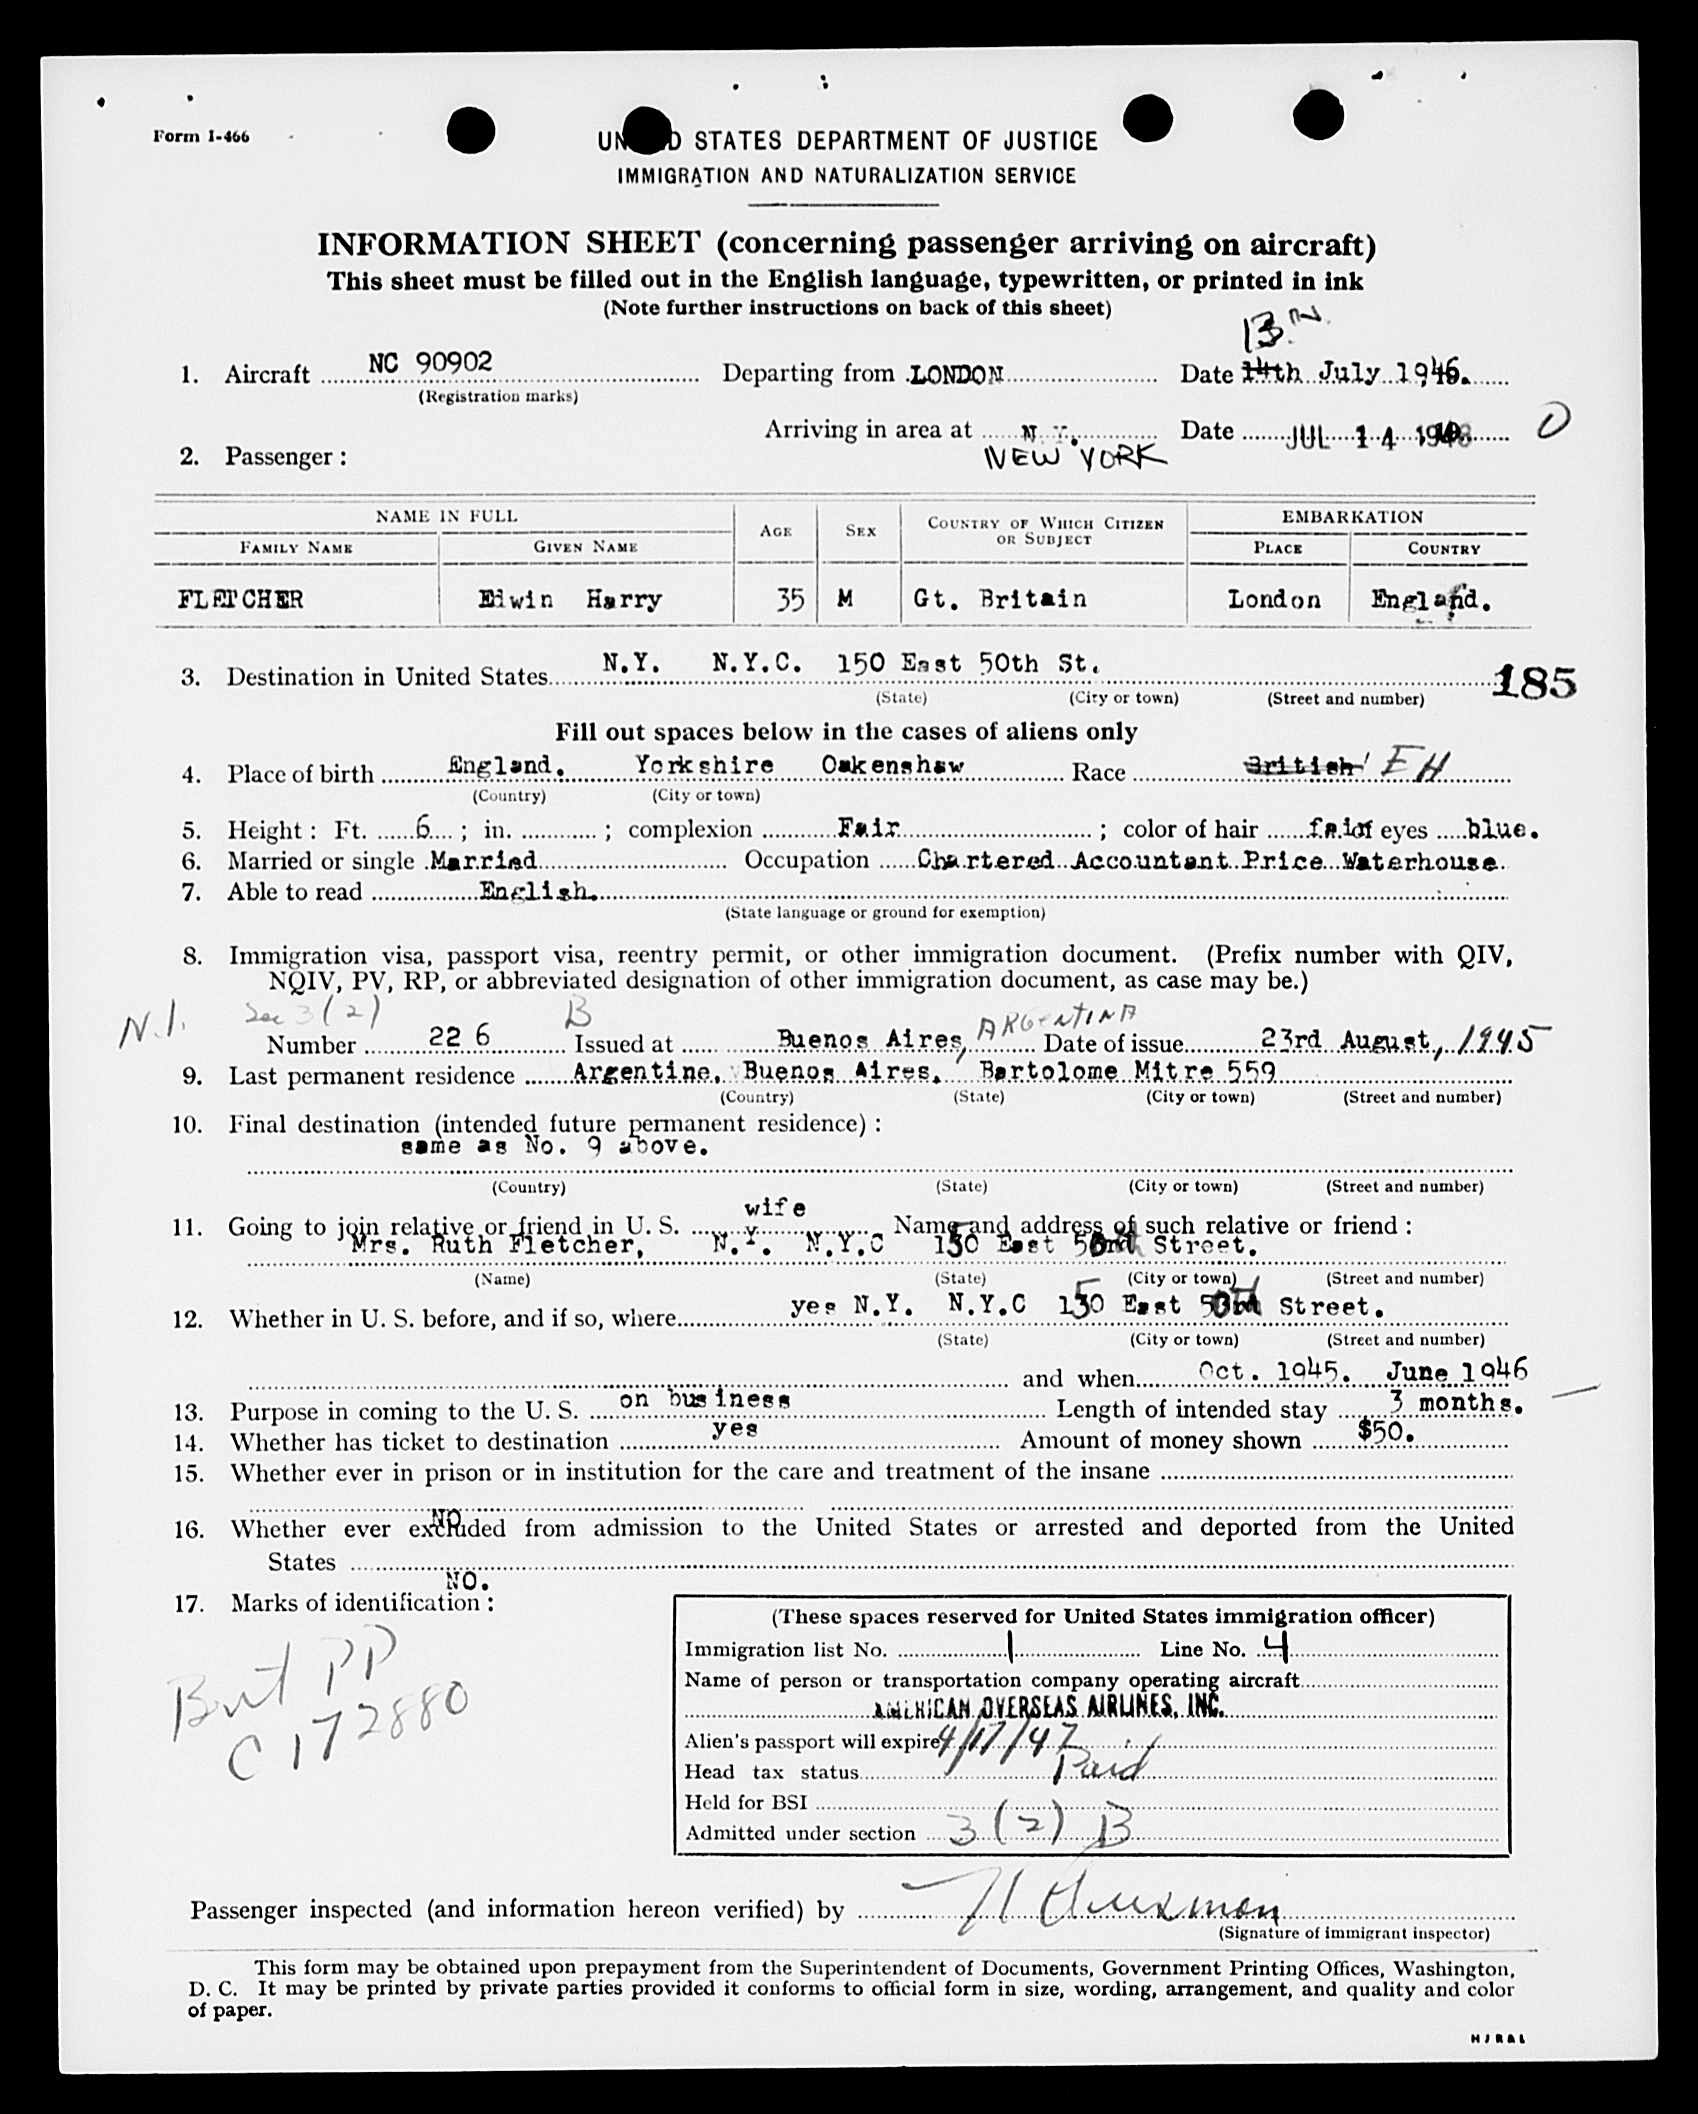 Form I-466
UNITED STATES DEPARTMENT OF JUSTICE
IMMIGRATION AND NATURALIZATION SERVICE
INFORMATION SHEET (concerning passenger arriving on aircraft)
This sheet must be filled out in the English language, typewritten, or printed in ink
(Note further instructions on back of this sheet)
13
1. Aircraft NC 90902 Departing from LONDON Date 14th July 1946.
(Registration marks)
Arriving in area at N.Y. Date JUL 14 O
2. Passenger : NEW YORK
NAME IN FULL AGE SEX COUNTRY OF WHICH CITIZEN OR SUBJECT EMBARKATION
FAMILY NAME GIVEN NAME PLACE COUNTRY
FLETCHER Edwin Harry 35 M Gt. Britain London England.
3. Destination in United States N.Y. N.Y.C. 150 East 50th St. 185
(State) (City or town) (Street and number)
Fill out spaces below in the cases of aliens only
4. Place of birth England. Yorkshire Oakenshaw Race British EH
(Country) (City or town)
5. Height : Ft. 6 ; in. ; complexion Fair ; color of hair fair eyes blue.
6. Married or single Married Occupation Chartered Accountant Price Waterhouse
7. Able to read English.
(State language or ground for exemption)
8. Immigration visa, passport visa, reentry permit, or other immigration document. (Prefix number with QIV,
NQIV, PV, RP, or abbreviated designation of other immigration document, as case may be.)
N.I. Sec 3(2) B ARGENTINA
Number 226 Issued at Buenos Aires, Date of issue 23rd August, 1945
9. Last permanent residence Argentine, Buenos Aires, Bartolome Mitre 559
(Country) (State) (City or town) (Street and number)
10. Final destination (intended future permanent residence) :
same as No. 9 above.
(Country) (State) (City or town) (Street and number)
wife
11. Going to join relative or friend in U. S. Name and address of such relative or friend :
Mrs. Ruth Fletcher, N.Y. N.Y.C 150 East Street.
(Name) (State) (City or town) (Street and number)
12. Whether in U. S. before, and if so, where yes N.Y. N.Y.C 150 East Street.
(State) (City or town) (Street and number)
and when Oct. 1945. June 1946
13. Purpose in coming to the U. S. on business Length of intended stay 3 months.
14. Whether has ticket to destination yes Amount of money shown $50.
15. Whether ever in prison or in institution for the care and treatment of the insane
NO
16. Whether ever excluded from admission to the United States or arrested and deported from the United
States
NO.
17. Marks of identification :
Brit PP
C 172880
(These spaces reserved for United States immigration officer)
Immigration list No. 1 Line No. 4
Name of person or transportation company operating aircraft
AMERICAN OVERSEAS AIRLINES, INC.
Alien's passport will expire 4/17/47
Head tax status Paid
Held for BSI
Admitted under section 3(2) B
Passenger inspected (and information hereon verified) by
(Signature of immigrant inspector)
This form may be obtained upon prepayment from the Superintendent of Documents, Government Printing Offices, Washington,
D. C. It may be printed by private parties provided it conforms to official form in size, wording, arrangement, and quality and color
of paper.